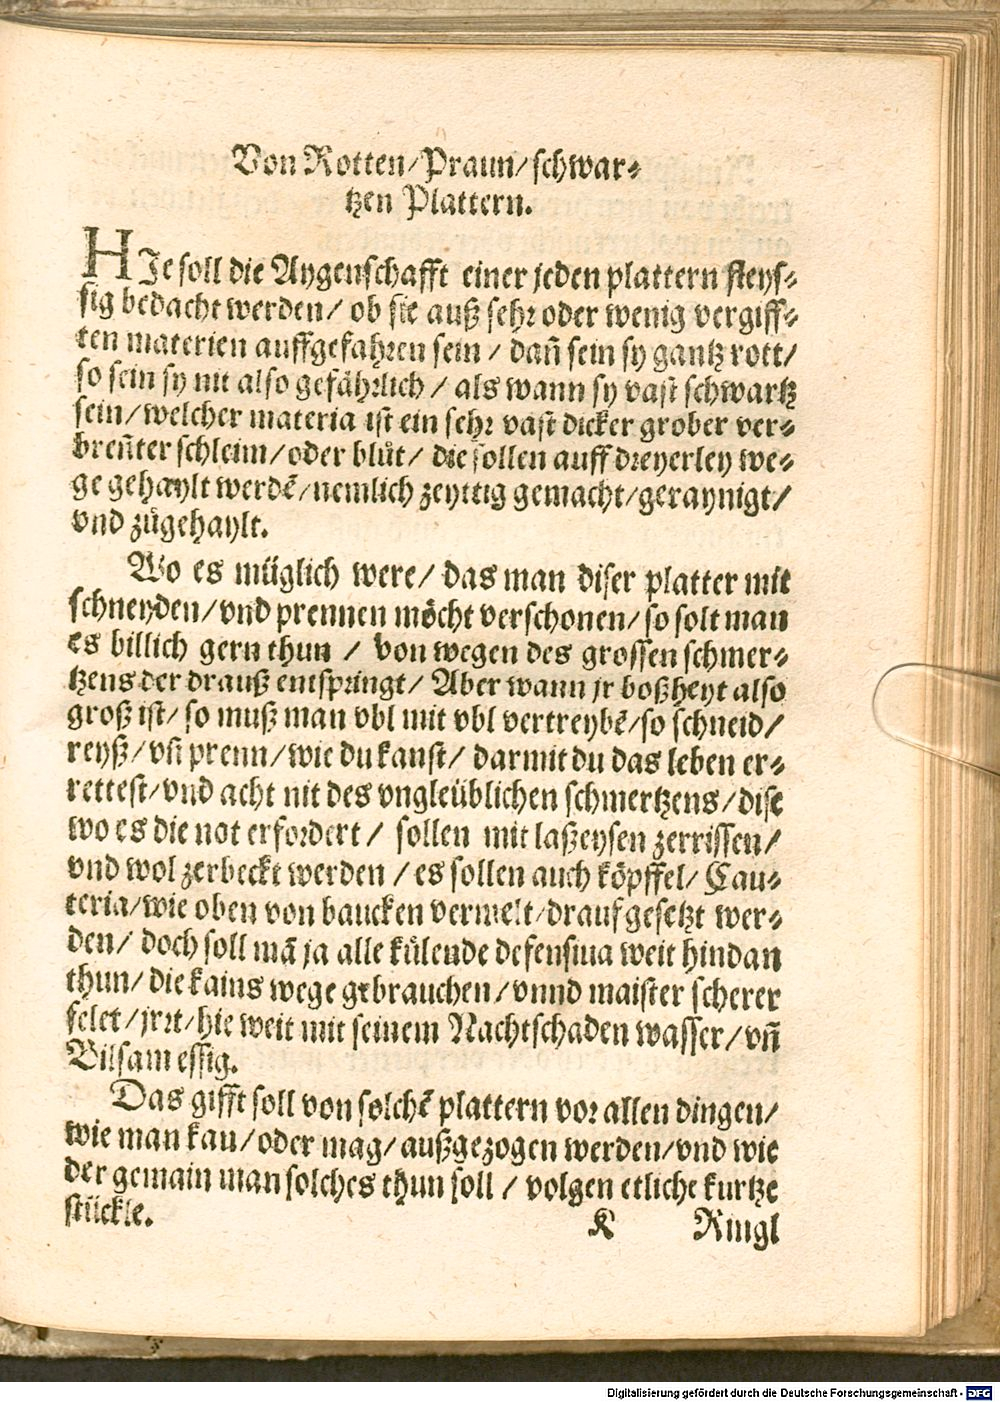 Von Rotten/Praun/schwar⸗
tzen Plattern.
HJe soll die Aygenschafft einer jeden plattern fleys⸗
sig bedacht werden/ ob sie auß sehr oder wenig vergiff⸗
ten materien auffgefahren sein / dañ sein sy gantz rott/
so sein sy nit also gefährlich / als wann sy vast schwartz
sein/welcher materia ist ein sehr vast dicker grober ver⸗
breñter schleim/oder blůt/ die sollen auff dreyerley we⸗
ge gehaylt werdē/nemlich zeyttig gemacht/geraynigt/
vnd zůgehaylt.
Wo es müglich were/ das man diser platter mit
schneyden/vnd prennen möcht verschonen/so solt man
es billich gern thun / von wegen des grossen schmer⸗
tzens der drauß entspringt/ Aber wann jr boßheyt also
groß ist/ so muß man vbl mit vbl vertreybē/so schneid/
reyß/vñ prenn/wie du kanst/ darmit du das leben er⸗
rettest/vnd acht nit des vngleüblichen schmertzens/dise
wo es die not erfordert/ sollen mit laßeysen zerrissen/
vnd wol zerbeckt werden /es sollen auch köpffel/ Cau⸗
teria/wie oben von baucken vermelt/drauf gesetzt wer⸗
den/ doch soll mā ja alle külende defensiua weit hindan
thun/ die kains wege gebrauchen/vnnd maister scherer
felet/jrrt/hie weit mit seinem Nachtschaden wasser/vñ
Bilsam essig.
Das gifft soll von solchē plattern vor allen dingen/
wie man kan/oder mag/außgezogen werden/vnd wie
der gemain man solches thun soll / volgen etliche kurtze
stückle.
K Ringl
Digitalisierung gefördert durch die Deutsche Forschungsgemeinschaft - DFG